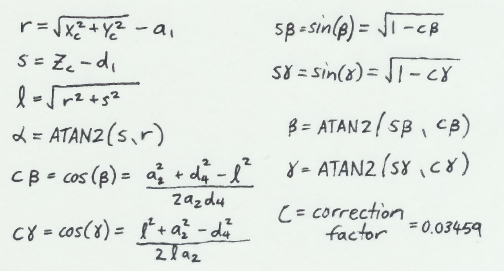 r = √(x_c² + y_c²) - a₁
s = z_c - d₁
l = √(r² + s²)
α = ATAN2(s, r)
cβ = cos(β) = (a₂² + d₄² - l²) / (2a₂d₄)
cγ = cos(γ) = (l² + a₂² - d₄²) / (2la₂)
sβ = sin(β) = √(1 - cβ)
sγ = sin(γ) = √(1 - cγ)
β = ATAN2(sβ, cβ)
γ = ATAN2(sγ, cγ)
C = correction
factor = 0.03459